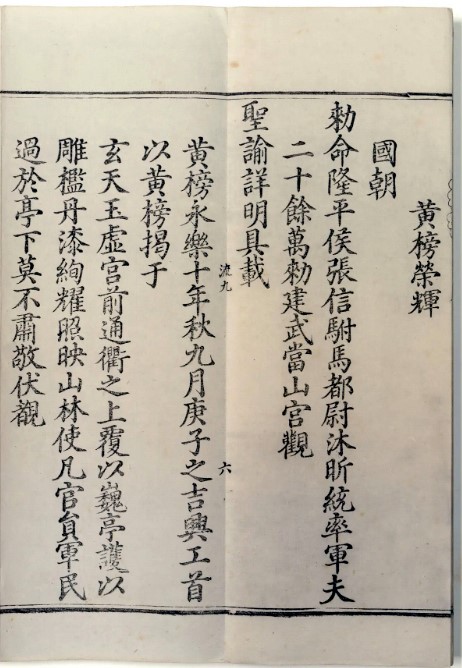 黃榜榮輝
國朝
勑命隆平侯張信駙馬都尉沐昕統率軍夫
二十餘萬勑建武當山宮觀
聖諭詳明具載
流九
六
黃榜永樂十年秋九月庚子之吉興工首
以黃榜揭于
玄天玉虛宮前通衢之上覆以巍亭護以
雕檻丹漆絢耀照映山林使凡官員軍民
過於亭下莫不肅敬伏觀